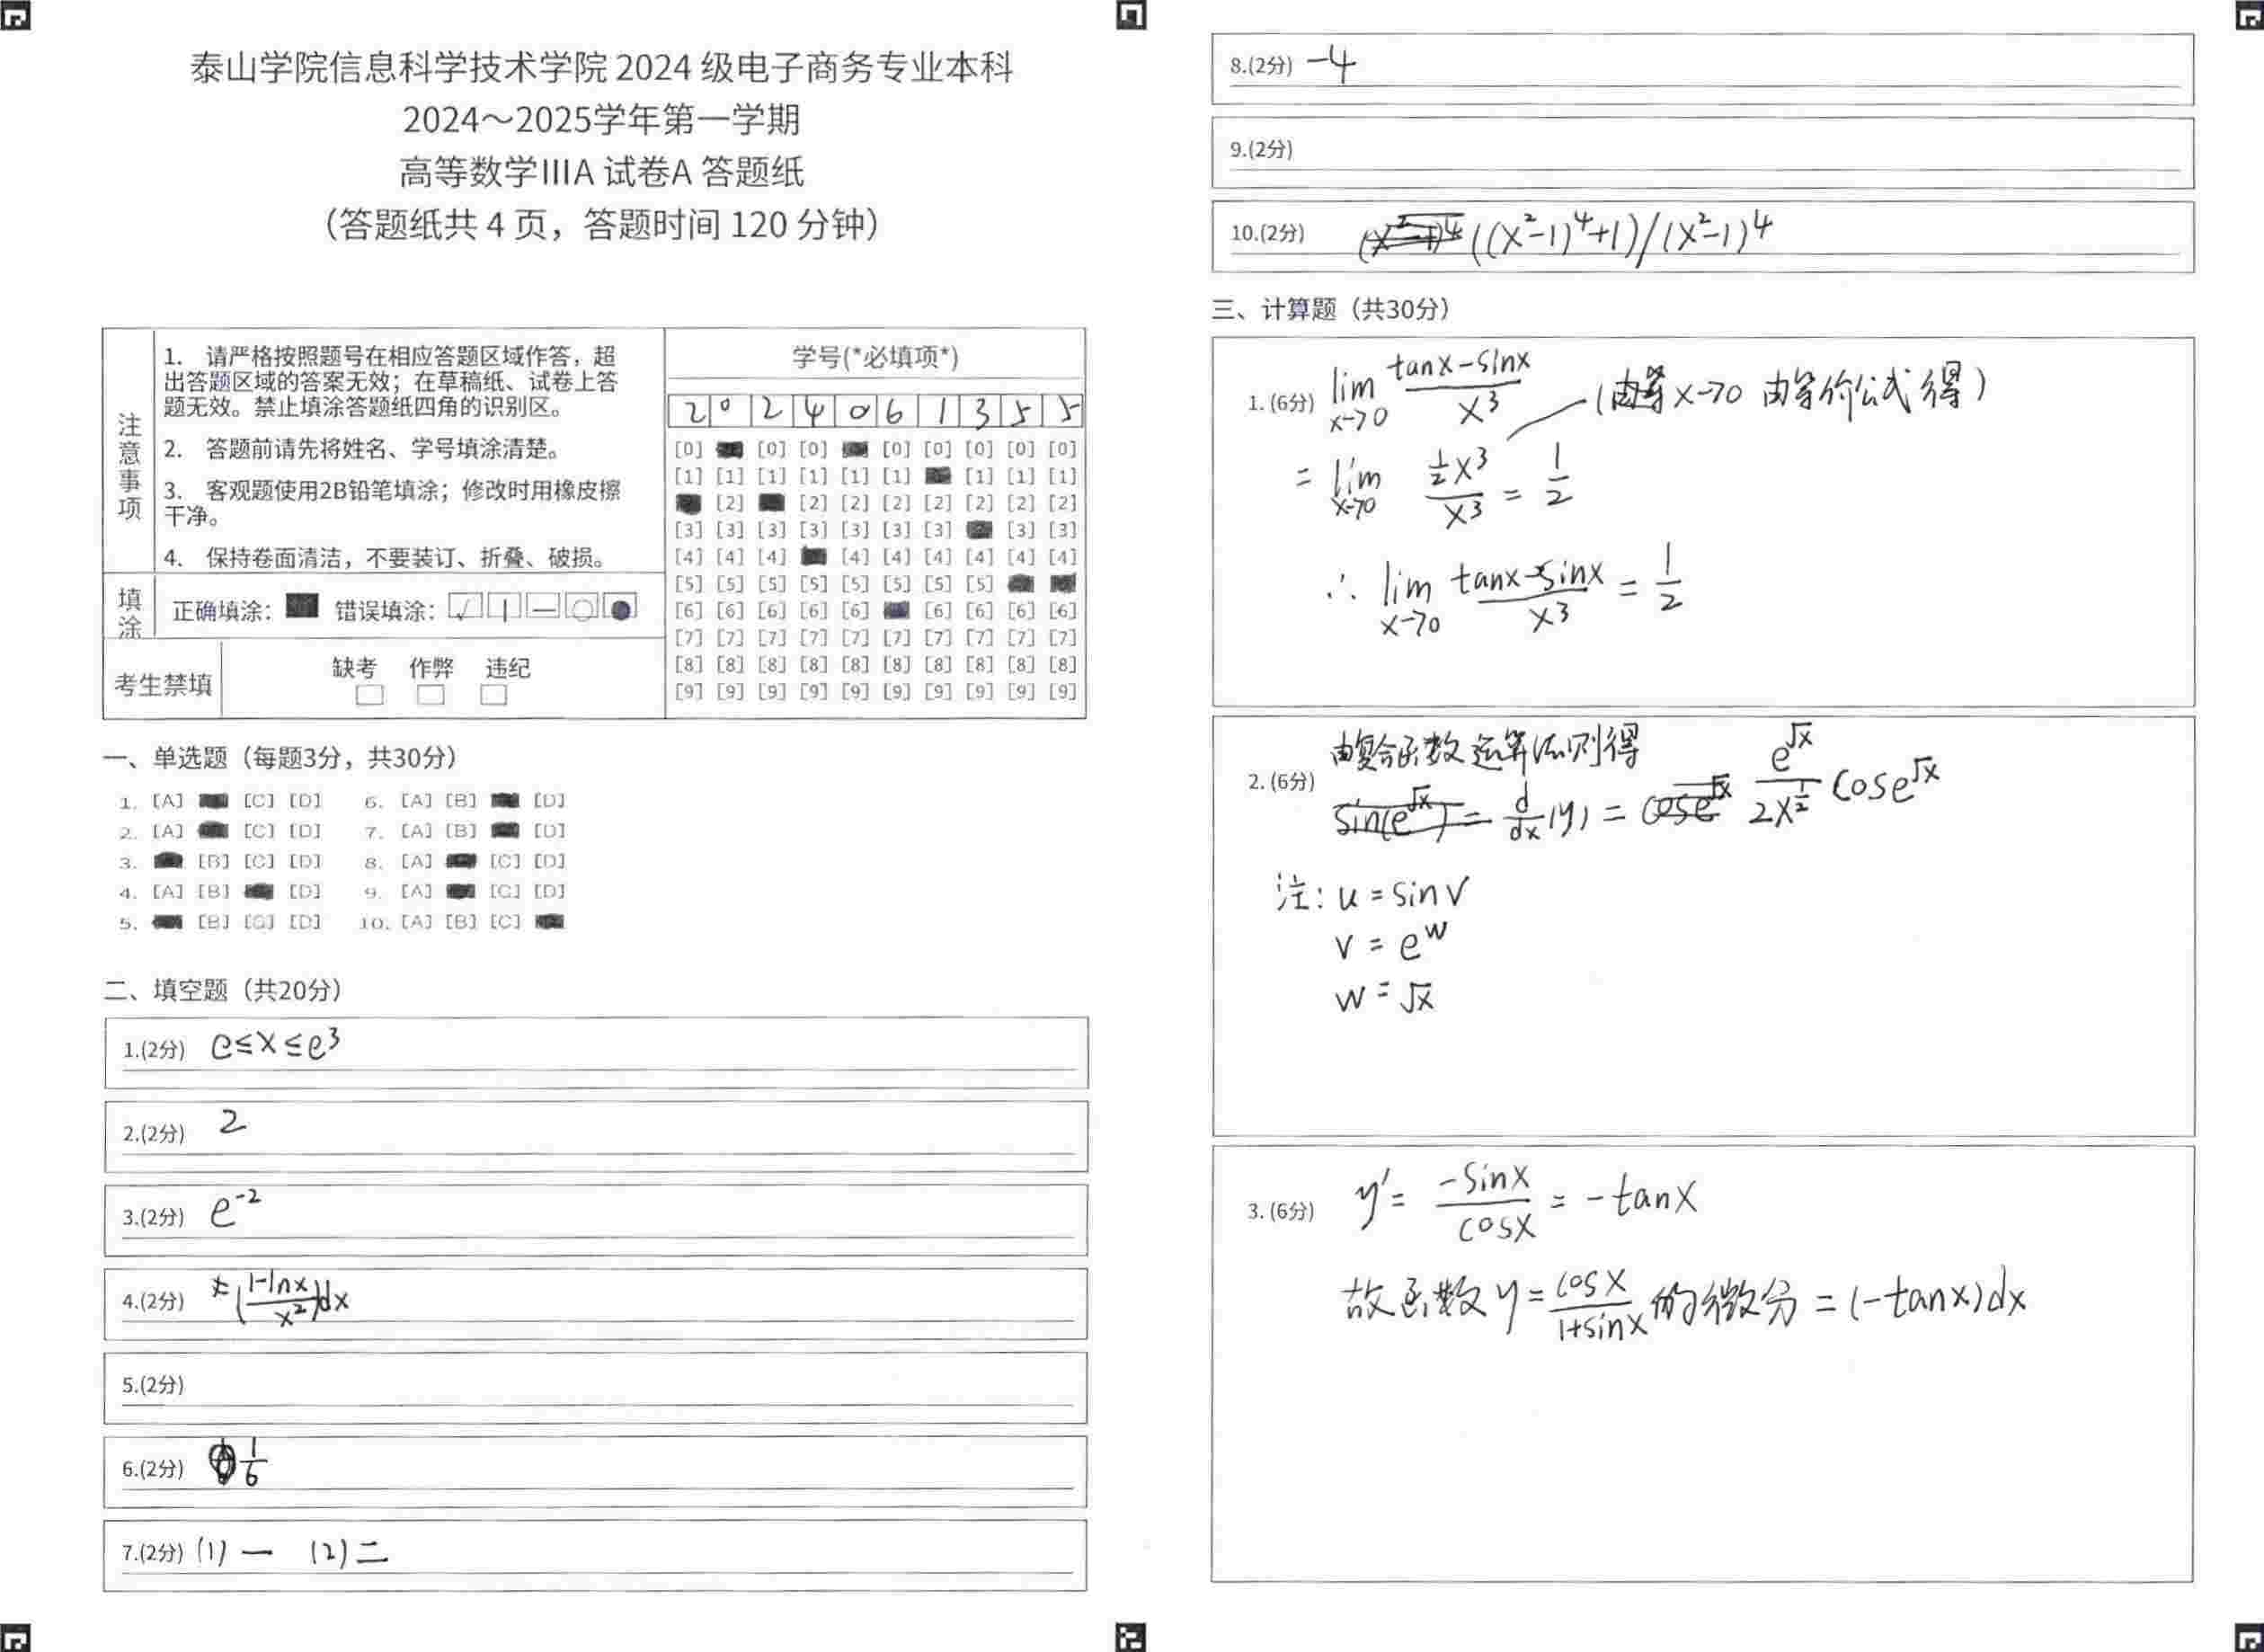 泰山学院信息科学技术学院 2024 级电子商务专业本科
2024～2025学年第一学期
高等数学IIIA 试卷A 答题纸
（答题纸共 4 页，答题时间 120 分钟）
注意事项
1. 请严格按照题号在相应答题区域作答，超
出答题区域的答案无效；在草稿纸、试卷上答
题无效。禁止填涂答题纸四角的识别区。
2. 答题前请先将姓名、学号填涂清楚。
3. 客观题使用2B铅笔填涂；修改时用橡皮擦
干净。
4. 保持卷面清洁，不要装订、折叠、破损。
填涂 正确填涂： 错误填涂：
考生禁填 缺考 作弊 违纪
学号(*必填项*)
2 0 2 4 0 6 1 3 5 5
[0] [0] [0] [0] [0] [0] [0] [0]
[1] [1] [1] [1] [1] [1] [1] [1] [1]
[2] [2] [2] [2] [2] [2] [2] [2]
[3] [3] [3] [3] [3] [3] [3] [3] [3]
[4] [4] [4] [4] [4] [4] [4] [4] [4]
[5] [5] [5] [5] [5] [5] [5] [5]
[6] [6] [6] [6] [6] [6] [6] [6] [6]
[7] [7] [7] [7] [7] [7] [7] [7] [7] [7]
[8] [8] [8] [8] [8] [8] [8] [8] [8] [8]
[9] [9] [9] [9] [9] [9] [9] [9] [9] [9]
一、单选题（每题3分，共30分）
1. [A] [C] [D] 6. [A] [B] [D]
2. [A] [C] [D] 7. [A] [B] [D]
3. [B] [C] [D] 8. [A] [C] [D]
4. [A] [B] [D] 9. [A] [C] [D]
5. [B] [C] [D] 10. [A] [B] [C]
二、填空题（共20分）
1.(2分) e≤x≤e³
2.(2分) 2
3.(2分) e⁻²
4.(2分) (1-lnx/x²)dx
5.(2分)
6.(2分) 1/6
7.(2分) (1) 一 (2) 二
8.(2分) -4
9.(2分)
10.(2分) ((x²-1)⁴+1)/(x²-1)⁴
三、计算题（共30分）
1. (6分) lim x→0 tanx-sinx/x³ (由等x→0 由等价公式得)
= lim x→0 ½x³/x³ = 1/2
∴ lim x→0 tanx-sinx/x³ = 1/2
由复合函数运算法则得
2. (6分) sin(e^√x) = d/dx(y) = cose^√x e^√x/2x^½ cose^√x
注: u = sinv
v = e^w
w = √x
3. (6分) y′ = -sinx/cosx = -tanx
故函数y=cosx/1+sinx的微分=(-tanx)dx